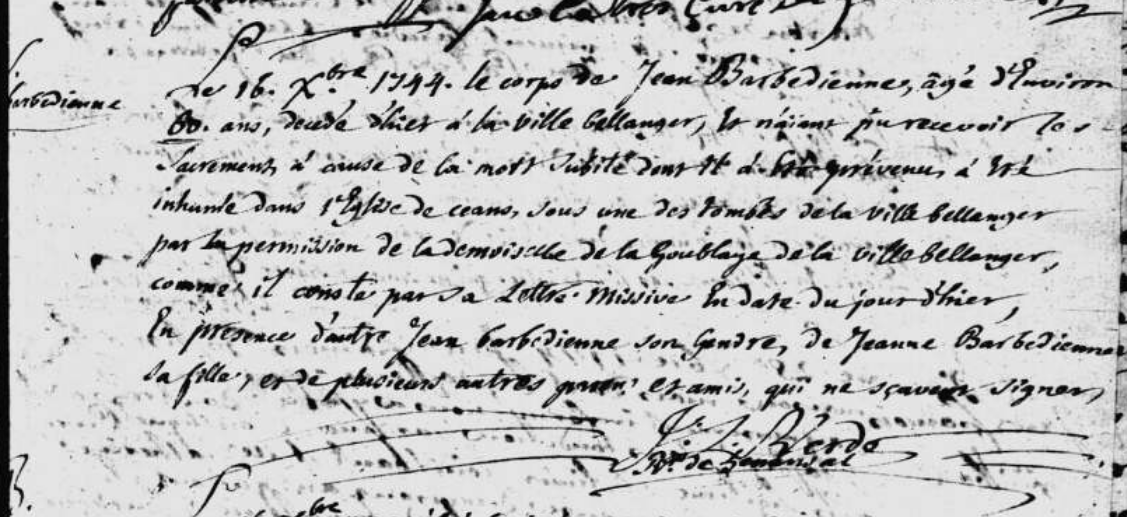 Barbedienne
Le 16. Xbre 1744. le corps de Jean Barbedienne, âgé d'Environ
60. ans, decedé d'hier á la ville bellanger, Et n'aïant pu recevoir les
Sacrements á cause de la mort subite dont Il á Eté prévenu, á Eté
inhumé dans l'Eglise de ceans, sous une des tombes de la ville bellanger
par la permission de la demoiselle de la Goublaye de la ville bellanger,
comme il conste par sa Lettre Missive En date du jour d'hier,
En presence d'autre Jean barbedienne son Gendre, de Jeanne Barbedienne
sa fille, et de plusieurs autres parens et amis, qui ne sçavent signer,